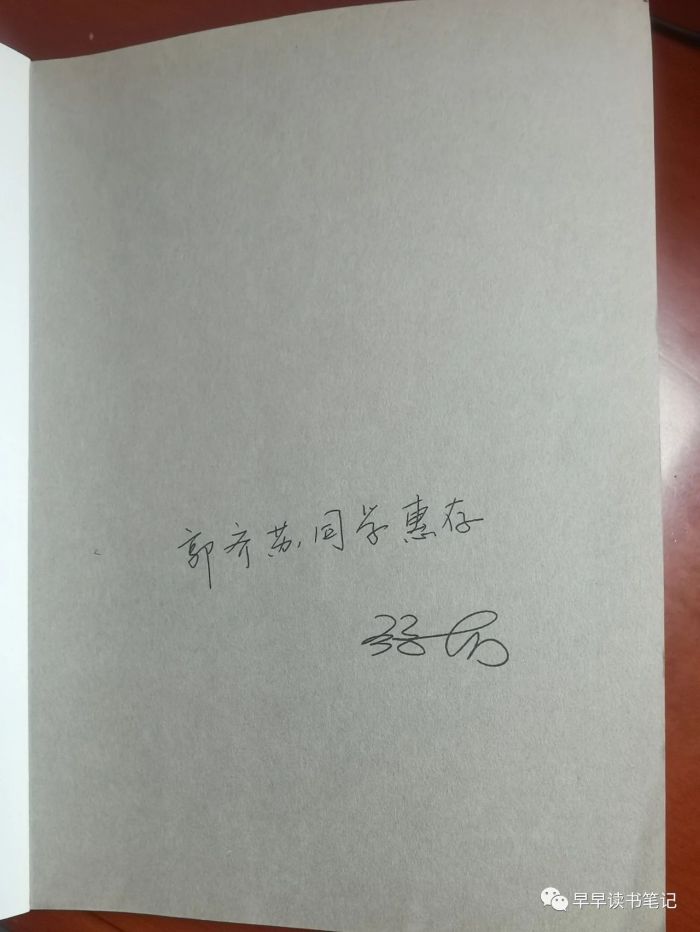 郭齐苏同学惠存
早早读书笔记